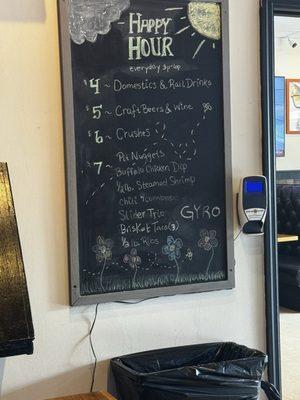 HAPPY
HOUR
everyday 3p-6p
4 ~ Domestics & Rail Drinks
5 ~ Craft Beers & Wine
6 ~ Crushes
7 ~ Pit Nuggets
Buffalo Chicken Dip
1/2lb. Steamed Shrimp
Chili & Cornbread
Slider Trio
GYRO
Brisket Taco (3)
1/3lb Ribs